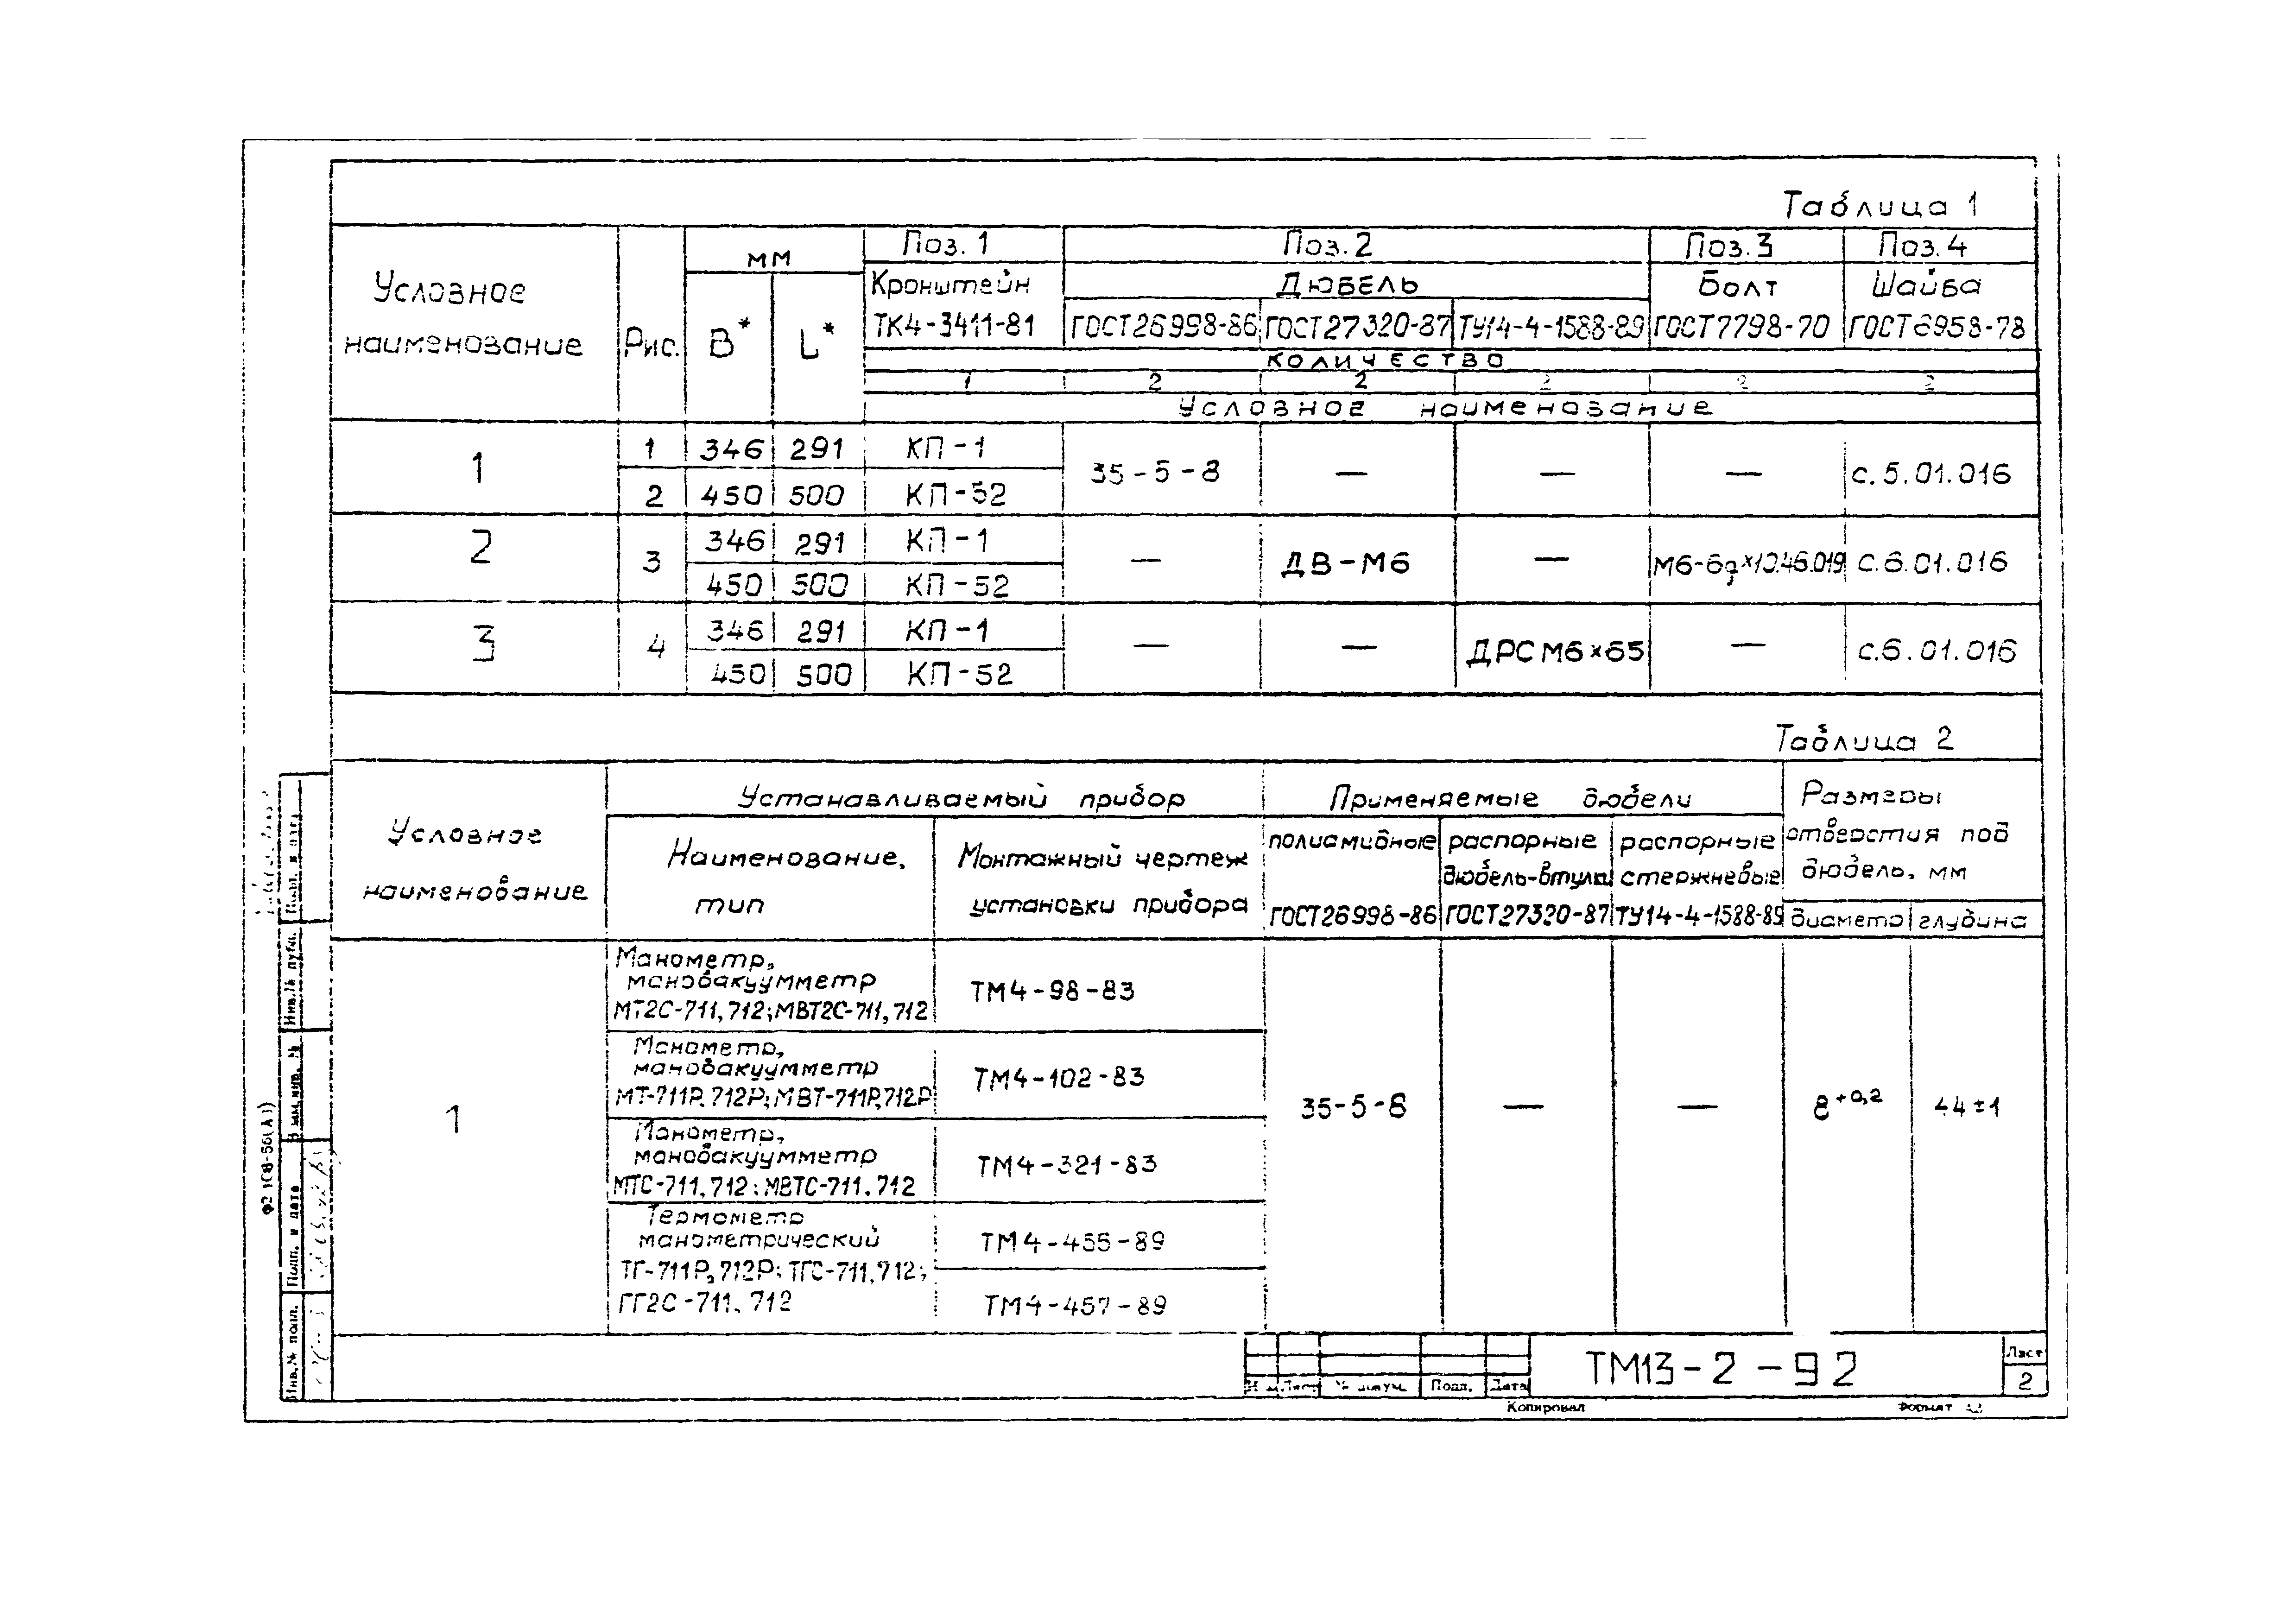 Таблица 1
Условное наименование
Рис.
мм
B*
L*
Поз. 1
Поз. 2
Поз. 3
Поз. 4
Кронштейн
ДЮБЕЛЬ
Болт
Шайба
ТК4-3411-81
ГОСТ26998-86
ГОСТ27320-87
ТУ14-4-1588-89
ГОСТ7798-70
ГОСТ6958-78
КОЛИЧЕСТВО
1 2 2 2 2 2
Условное наименование
1
1 346 291 КП-1
2 450 500 КП-52
35-5-8 — — — с.5.01.016
2
3
346 291 КП-1
450 500 КП-52
— ДВ-М6 — М6-6gх10.46.019 С.6.01.016
3
4
346 291 КП-1
450 500 КП-52
— — ДРСМ6х65 — с.6.01.016
Таблица 2
Условное наименование
Устанавливаемый прибор
Применяемые дюбели
Размеры
отверстия под
дюбель, мм
Наименование,
тип
Монтажный чертеж
установки прибора
полиамидные
ГОСТ26998-86
распорные
дюбель-втулки
ГОСТ27320-87
распорные
стержневые
ТУ14-4-1588-89
диаметр
глубина
1
Манометр,
мановакуумметр
МТ2С-711,712;МВТ2С-711,712
ТМ4-98-83
Манометр,
мановакуумметр
МТ-711Р,712Р;МВТ-711Р,712Р
ТМ4-102-83
Манометр,
мановакуумметр
МТС-711,712;МВТС-711.712
ТМ4-321-83
Термометр
манометрический
ТГ-711Р,712Р;ТГС-711,712;
ТГ2С-711,712
ТМ4-455-89
ТМ4-457-89
35-5-8 — — 8+0,2 44±1
ТМ13-2-92
Лист
2
Лист
№ докум.
Подп.
Дата
Копировал
Формат
Ф2.108-56(А3)
Инв.№ подл.
Подп. и дата
Взам.инв. №
Инв.№ дубл.
Подп. и дата